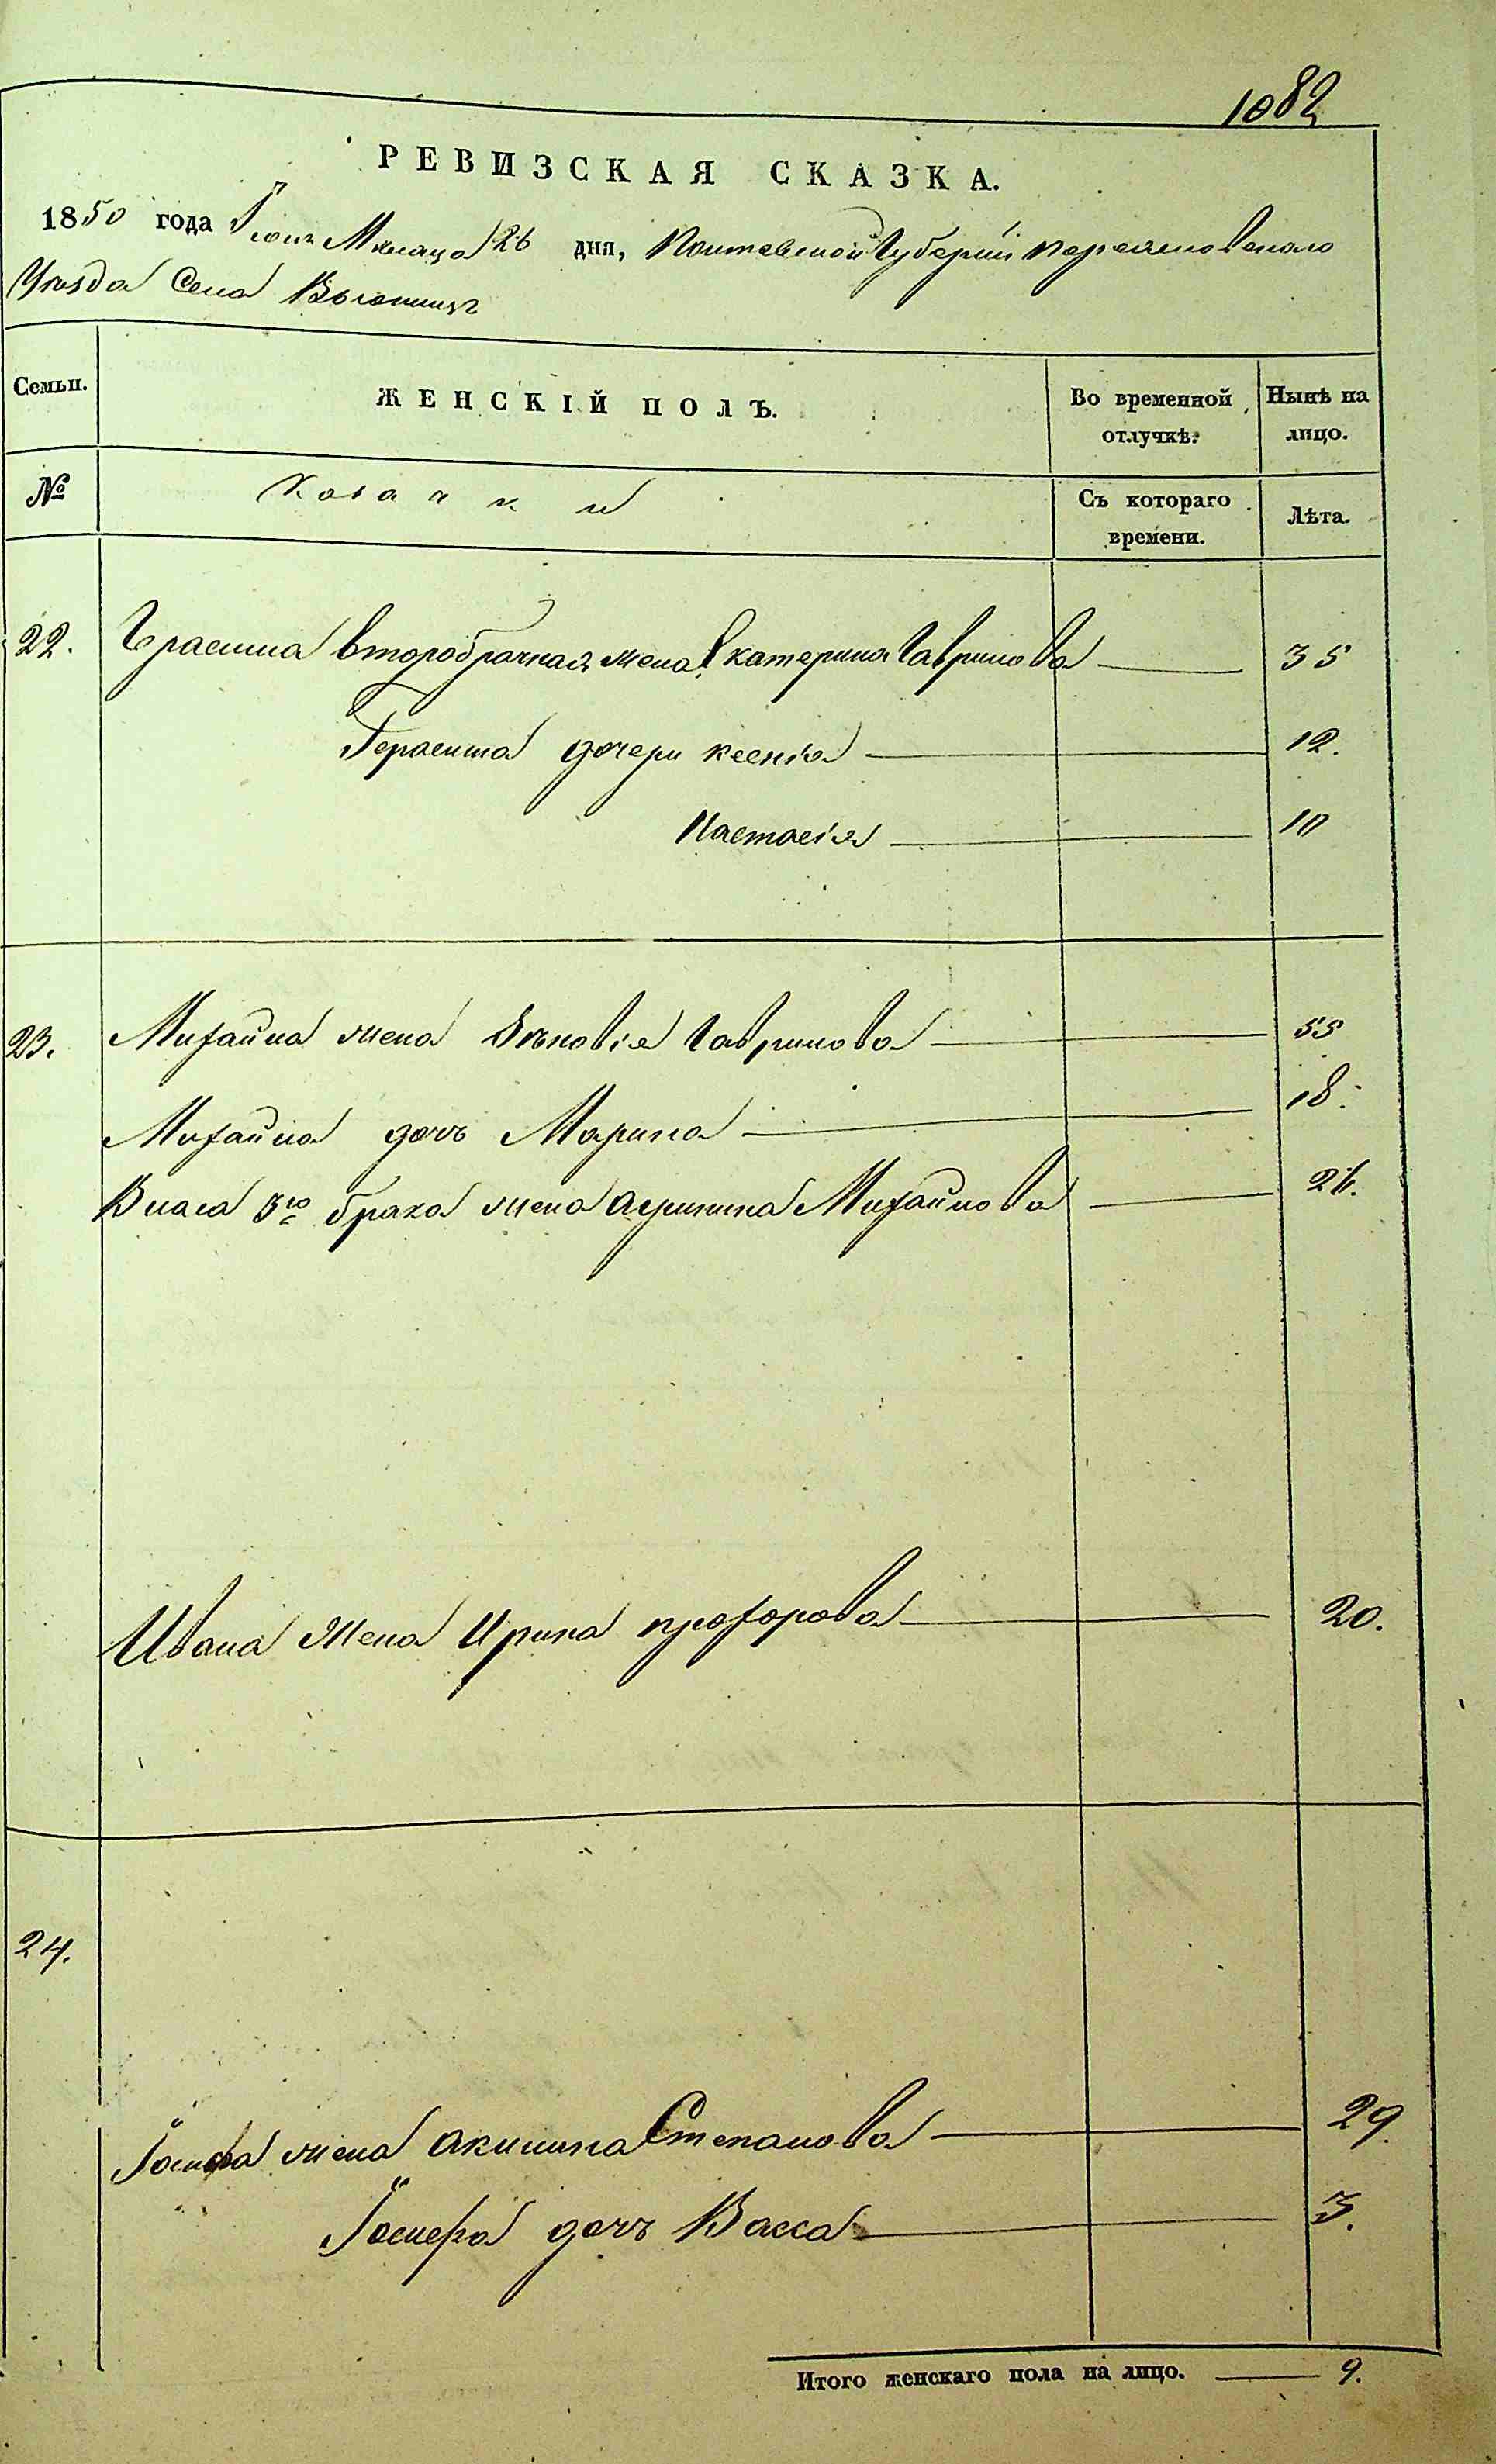 1082
РЕВИЗСКАЯ СКАЗКА.
1850 года Іюня Месяца 26 дня, Полтавской Губерніи Переяславскаго
Уезда Села
Семьи. ЖЕНСКІЙ ПОЛЪ. Во временной отлучкѣ. Нынѣ на лицо.
№ Козачки Съ котораго времени. Лѣта.
22. Герасима второбрачная жена Екатерина Гаврилова 35
Герасима дочери Ксенія 12.
Настасія 10
23. Михайла жена Зѣновія Гаврилова 55
Михайла дочь Марина 18.
Власа 3го брака жена Агрипина Михайлова 26.
Ивана жена Ирина Прохорова 20.
24.
Іосифа жена Акилина Степанова 29.
Іосифа дочь Васса 3.
Итого женскаго пола на лицо. 9.